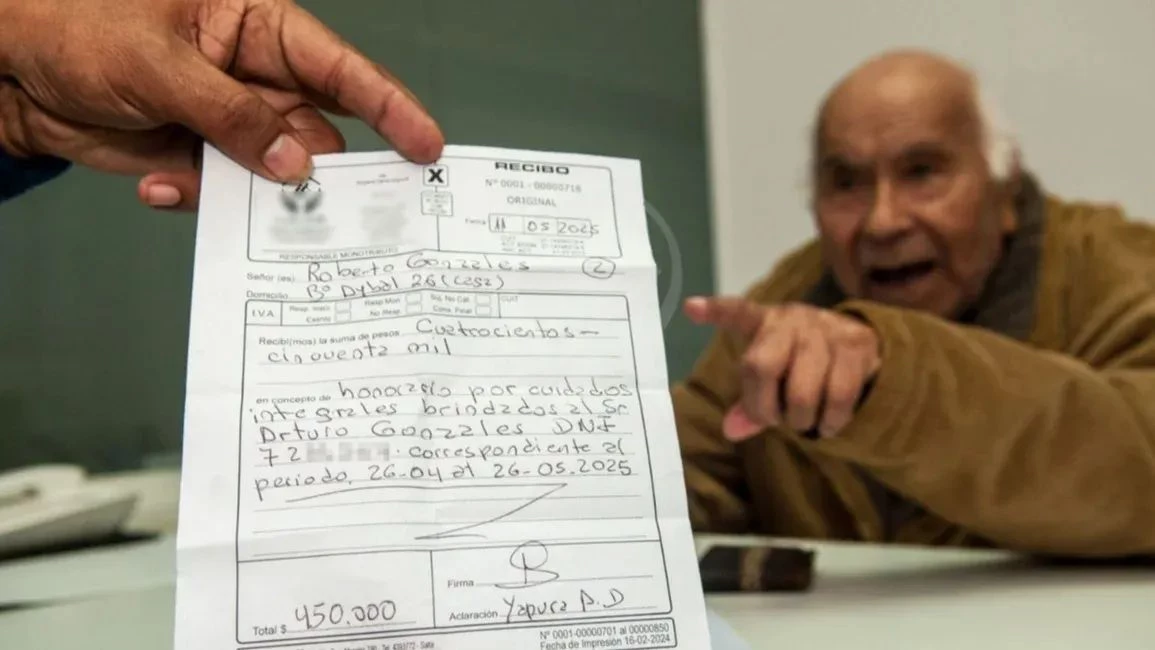 RECIBO
X
Nº 0001 - 00000718
ORIGINAL
Fecha 11 05 2025
RESPONSABLE MONOTRIBUTO
Señor (es): Roberto Gonzales 2
Domicilio Bº Dybal 26 (casa)
I.V.A. Resp. Insc. Resp Mon CUIT
Exento No Resp. Cons. Final
Recibi(mos) la suma de pesos Cuatrocientos -
cincuenta mil
en concepto de honorario por cuidados
integrales brindados al Sr
Arturo Gonzales DNI
72 correspondiente al
periodo. 26-04 al 26-05.2025
Total $ 450.000
Firma
Aclaración Yapura A.D
Nº 0001-00000701 al 00000850
Fecha de Impresión 16-02-2024